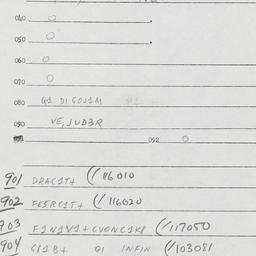 040 O
050 O
060 O
070 O
080 Q1 DISOJ1M
090 VE,JUD3R
092 O
901 DRAC1T+ (/116010
902 FE5RC1T+ (/116020
903 F1N1V1+CVONC1K8 (/117050
904 G818+ Q1 INFIN (/103081